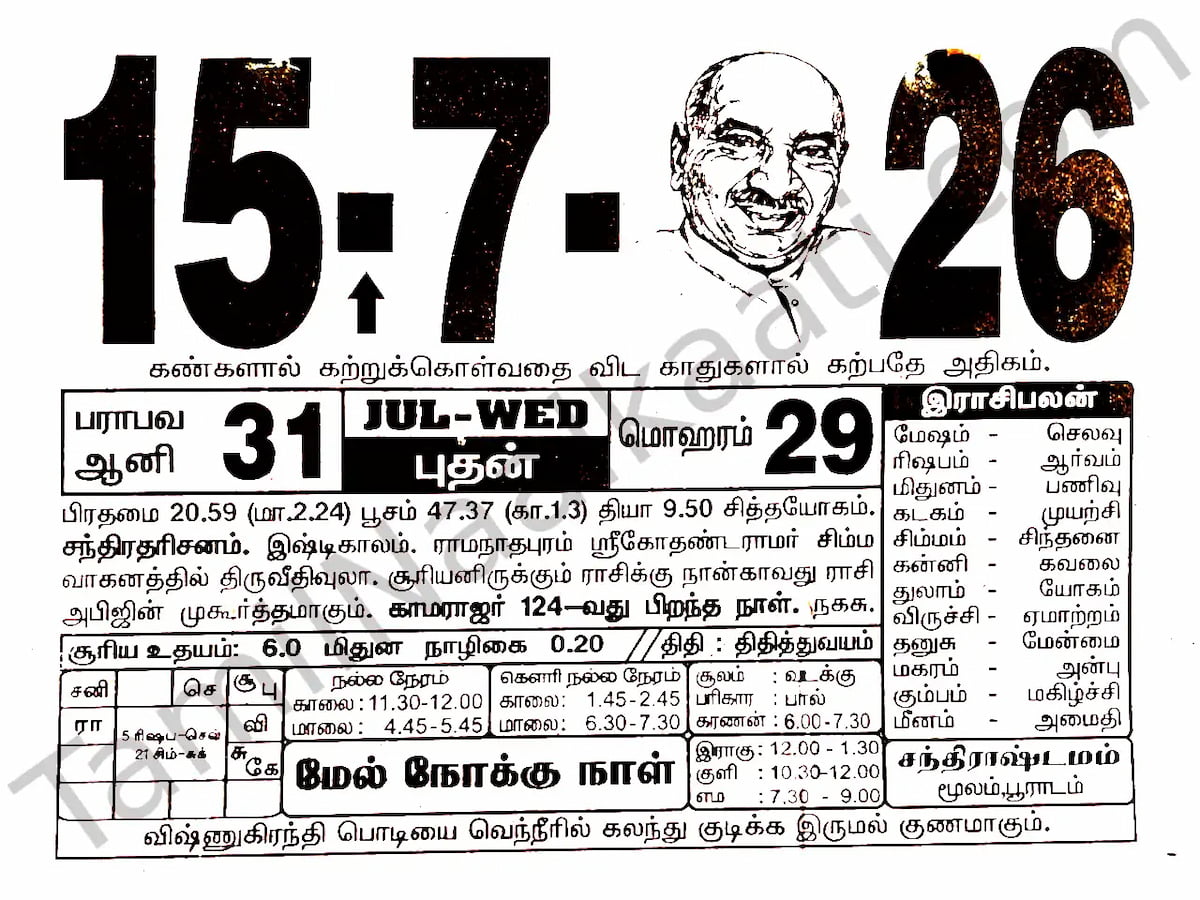 15-7-26
கண்களால் கற்றுக்கொள்வதை விட காதுகளால் கற்பதே அதிகம்.
பராபவ
ஆனி
31
JUL-WED
புதன்
மொஹரம்
29
பிரதமை 20.59 (மா.2.24) பூசம் 47.37 (கா.1.3) தியா 9.50 சித்தயோகம்.
சந்திரதரிசனம். இஷ்டிகாலம். ராமநாதபுரம் ஸ்ரீகோதண்டராமர் சிம்ம
வாகனத்தில் திருவீதிவுலா. சூரியனிருக்கும் ராசிக்கு நான்காவது ராசி
அபிஜின் முகூர்த்தமாகும். காமராஜர் 124-வது பிறந்த நாள். நகசு.
சூரிய உதயம்: 6.0 மிதுன நாழிகை 0.20 // திதி : திதித்துவயம்
இராசிபலன்
மேஷம் - செலவு
ரிஷபம் - ஆர்வம்
மிதுனம் - பணிவு
கடகம் - முயற்சி
சிம்மம் - சிந்தனை
கன்னி - கவலை
துலாம் - யோகம்
விருச்சி - ஏமாற்றம்
தனுசு - மேன்மை
மகரம் - அன்பு
கும்பம் - மகிழ்ச்சி
மீனம் - அமைதி
சனி செ சூ பு
ரா வி
5 ரிஷப-செவ்
21 சிம்-சுக்
சு
கே
நல்ல நேரம்
காலை: 11.30-12.00
மாலை: 4.45-5.45
கௌரி நல்ல நேரம்
காலை: 1.45-2.45
மாலை: 6.30-7.30
சூலம் : வடக்கு
பரிகார : பால்
கரணன் : 6.00-7.30
மேல் நோக்கு நாள்
இராகு : 12.00 - 1.30
குளி : 10.30-12.00
எம : 7.30 - 9.00
சந்திராஷ்டமம்
மூலம்,பூராடம்
விஷ்ணுகிரந்தி பொடியை வெந்நீரில் கலந்து குடிக்க இருமல் குணமாகும்.
TamilNaalkaati.com